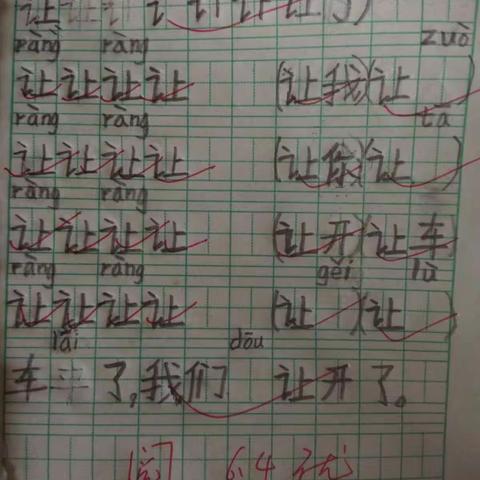 让
ràng ràng zuò
让让让让 (让我)(让 )
ràng ràng tā
让让让让 (让你)(让 )
ràng ràng
让让让让 (让开)(让车)
ràng ràng gěi lù
让让让让 (让 )(让 )
lái dōu
车 了,我们 让开了。
阅 6.4 优